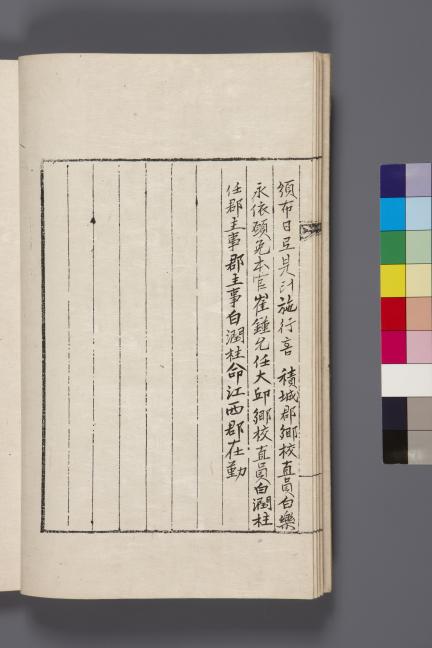 須布日로是計施行喜 積城郡鄕校直員白樂
永依願免本官崔鍾允任大邱鄕校直員白潤柱
任郡主事郡主事白潤柱命江西郡在勤